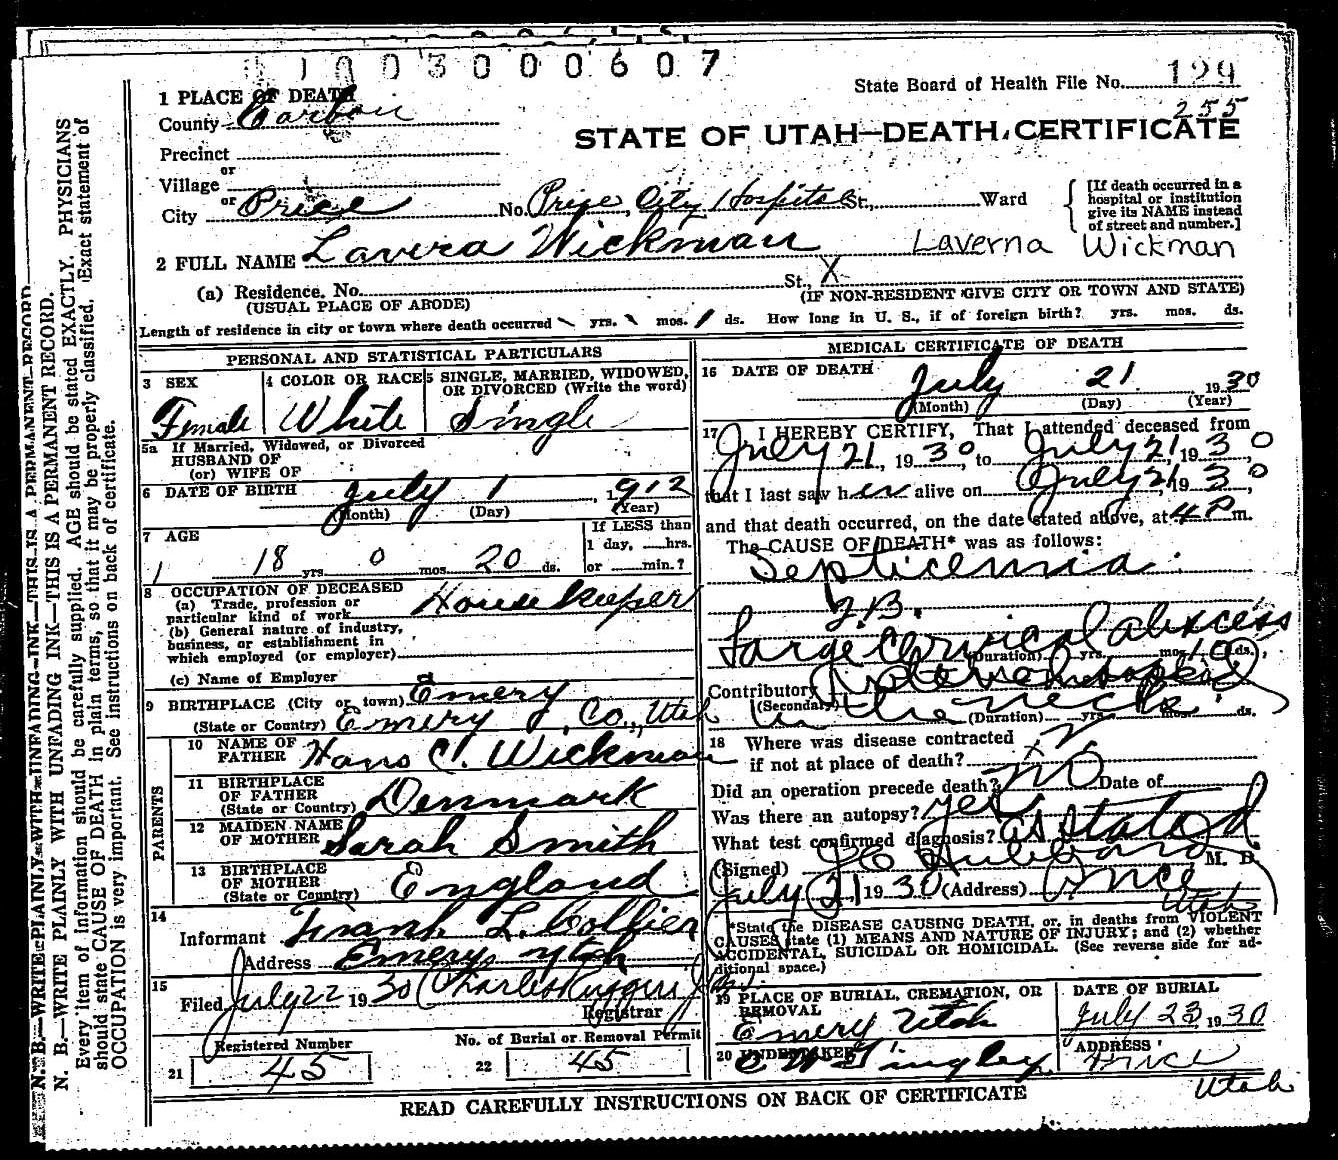 1003000607
State Board of Health File No. 129
255
1 PLACE OF DEATH
County Carbon
STATE OF UTAH—DEATH CERTIFICATE
Precinct
or
Village
or
City Price No. Price City Hospital St., Ward
[If death occurred in a hospital or institution give its NAME instead of street and number.]
2 FULL NAME Lavera Wickman Laverna Wickman
(a) Residence. No. St., X
(USUAL PLACE OF ABODE) (IF NON-RESIDENT GIVE CITY OR TOWN AND STATE)
Length of residence in city or town where death occurred \ yrs. \ mos. 1 ds. How long in U. S., if of foreign birth? yrs. mos. ds.
PERSONAL AND STATISTICAL PARTICULARS
3 SEX 4 COLOR OR RACE 5 SINGLE, MARRIED, WIDOWED, OR DIVORCED (Write the word)
Female White Single
5a If Married, Widowed, or Divorced
HUSBAND OF
(or) WIFE OF
6 DATE OF BIRTH July 1, 1912
(Month) (Day) (Year)
7 AGE If LESS than
1 day, hrs.
18 yrs. 0 mos. 20 ds. or min.?
8 OCCUPATION OF DECEASED
(a) Trade, profession or
particular kind of work Housekeeper
(b) General nature of industry,
business, or establishment in
which employed (or employer)
(c) Name of Employer
9 BIRTHPLACE (City or town) Emery
(State or Country) Emery Co., Utah
PARENTS
10 NAME OF FATHER Hans C. Wickman
11 BIRTHPLACE OF FATHER (State or Country) Denmark
12 MAIDEN NAME OF MOTHER Sarah Smith
13 BIRTHPLACE OF MOTHER (State or Country) England
14 Informant Frank L. Collier
Address Emery Utah
15 Filed July 22 1930 Charles Ruggeri Jr.
Registrar
Registered Number No. of Burial or Removal Permit
21 45 22 45
MEDICAL CERTIFICATE OF DEATH
16 DATE OF DEATH July 21, 1930
(Month) (Day) (Year)
17 I HEREBY CERTIFY, That I attended deceased from
July 21, 1930, to July 21, 1930,
that I last saw her alive on July 21, 1930,
and that death occurred, on the date stated above, at 4 P m.
The CAUSE OF DEATH* was as follows:
Septicemia
Large Cervical abscess
(Duration) yrs. mos. 10 ds.
Contributory
(Secondary) in the neck.
(Duration) yrs. mos. ds.
18 Where was disease contracted
if not at place of death?
Did an operation precede death? no Date of
Was there an autopsy? yes
What test confirmed diagnosis? as stated
(Signed) Hubbard M. D.
July 21 1930 (Address) Price Utah
*State the DISEASE CAUSING DEATH, or, in deaths from VIOLENT
CAUSES state (1) MEANS AND NATURE OF INJURY; and (2) whether
ACCIDENTAL, SUICIDAL OR HOMICIDAL. (See reverse side for additional space.)
19 PLACE OF BURIAL, CREMATION, OR REMOVAL DATE OF BURIAL
Emery Utah July 23 1930
20 UNDERTAKER ADDRESS
E W Tingley Price Utah
READ CAREFULLY INSTRUCTIONS ON BACK OF CERTIFICATE
N. B.—WRITE PLAINLY WITH UNFADING INK—THIS IS A PERMANENT RECORD.
N. B.—WRITE PLAINLY WITH UNFADING INK—THIS IS A PERMANENT RECORD.
Every item of information should be carefully supplied. AGE should be stated EXACTLY. PHYSICIANS
should state CAUSE OF DEATH in plain terms, so that it may be properly classified. Exact statement of
OCCUPATION is very important. See instructions on back of certificate.